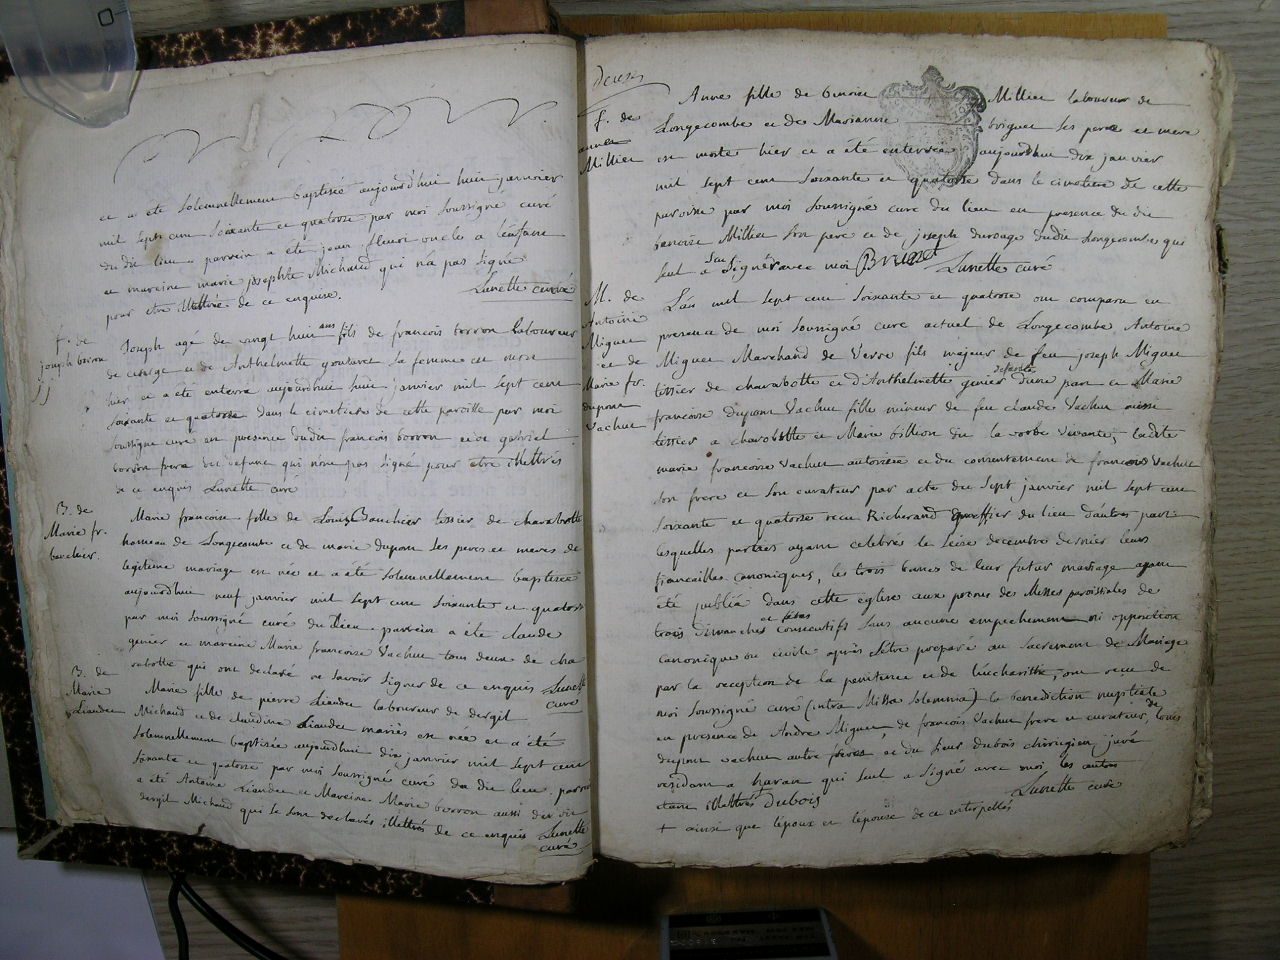 et a été solemnellement baptisée aujourd'hui huit janvier
mil sept cent soixante et quatorze par moi soussigné curé
du dit lieu. parrein a été jean oncle a l'enfant
et mareine marie josephte Michaud qui n'a pas signé
pour etre illettrée de ce enquise. Lunette curé
f. de
joseph borron
Joseph agé de vingt huit ans fils de françois borron laboureur
de et de Anthelmette sa femme est mort
hier et a été enterré aujourd'huy huit janvier mil sept cent
soixante et quatorze dans le cimetiere de cette paroisse par moi
soussigné curé en presence dudit françois borron et de gabriel
borron frere du defunt qui n'ont pas signé pour etre illettrés
de ce enquis Lunette curé
B. de
Marie fr.
bouchier.
Marie françoise fille de Louis Bouchier tessier de charabotte
hameau de Longecombe et de marie dupont ses peres et meres de
legitime mariage est née et a été solemnellement baptisée
aujourd'hui neuf janvier mil sept cent soixante et quatorze
par moi soussigné curé du lieu. parrein a été claude
genier et mareine Marie francoise Vachut tous deux de cha
rabotte qui ont declaré ne savoir signer de ce enquis Lunette
curé
B. de
Marie
Liandu
Marie fille de pierre Liandu laboureur de dergit
Michaud et de claudine Liandu mariés est née et a été
solemnellement baptisée aujourd'hui dix janvier mil sept cent
soixante et quatorze par moi soussigné curé du dit lieu. parrein
a été Antoine Liandu et Mareine Marie borron aussi du dit
dergit Michaud qui se sont declarés illettrés de ce enquis Lunette
curé
f. de
anne
Millet
Anne fille de benoit Millet laboureur de
Longecombe et de Marianne briguet ses pere et mere
est morte hier et a été enterrée aujourd'hui dix janvier
mil sept cent soixante et quatorze dans le cimetiere de cette
paroisse par moi soussigné curé du lieu en presence du dit
benoit Millet son pere et de joseph durouge dudit Longecombe qui
seul a signé avec moi Lunette curé
M. de
Antoine
Miguet
et de
Marie fr.
dupont
Vachut
L'an mil sept cent soixante et quatorze ont comparu en
presence de moi soussigné curé actuel de Longecombe Antoine
Miguet Marchand de Verre fils majeur de feu joseph Miguet
tessier de charabotte et d'Anthelmette genier defunte d'une part et Marie
françoise dupont Vachut fille mineur de feu claude Vachut aussi
tessier a charabotte et Marie billion dit la vorbe vivante, ladite
marie françoise Vachut autorisée et du consentement de françois Vachut
son frere et son curateur par acte du sept janvier mil sept cent
soixante et quatorze recu Richerand greffier du lieu d'autre part
lesquelles parties ayant celebrés le seize decembre dernier leurs
fiançailles canoniques, les trois bancs de leur futur mariage ayant
été publiés dans cette eglise aux prones des Messes paroissiales de
trois dimanches et fetes consecutifs sans aucune empechement ni opposition
canonique ou civile après s'etre preparé au Sacrement de Mariage
par la reception de la penitence et de l'eucharistie, ont recu de
moi soussigné curé (intra Missa solemnia) la benediction nuptiale
en presence de Andre Miguet, de françois Vachut frere et curateur, de louis
dupont vachut autre frere et du sieur dubois chirurgien juré
residant a qui seul a signé avec moi les autres
etant illettrés Dubois Lunette curé
+ ainsi que l'epoux et l'epouse de ce enterpellés